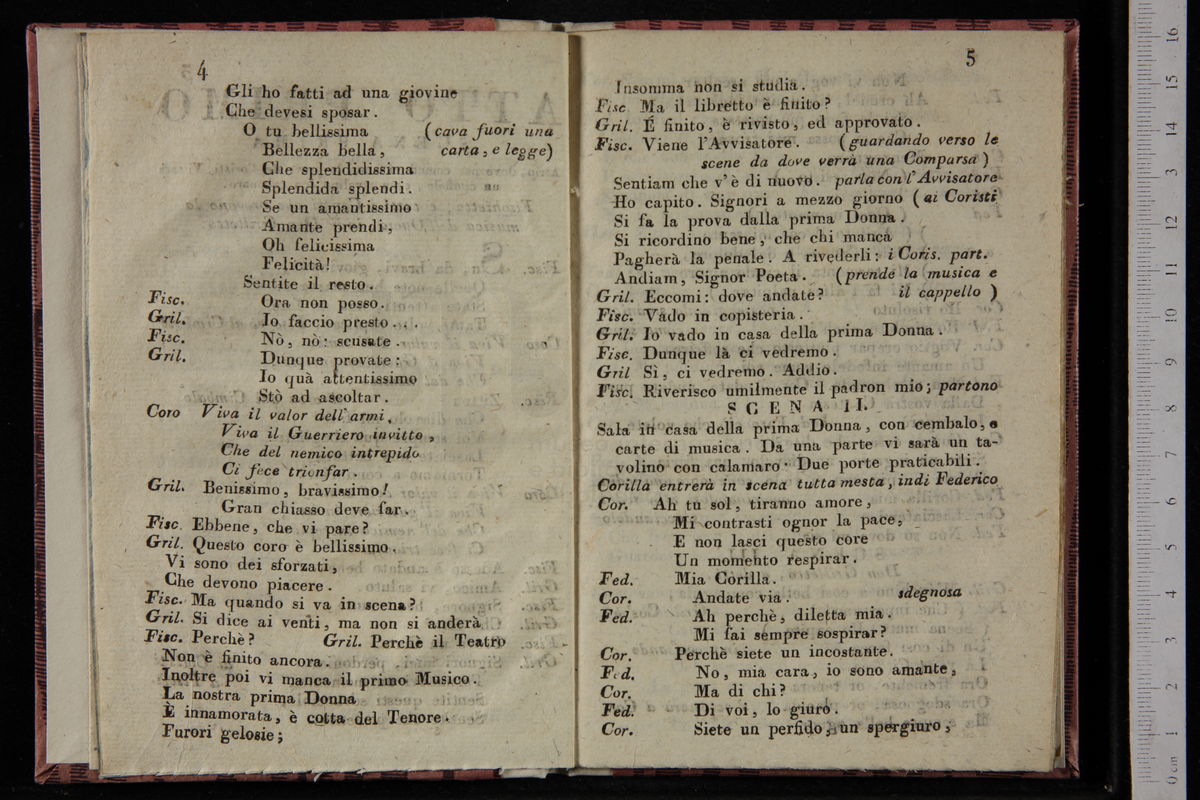 4
Gli ho fatti ad una giovine
Che devesi sposar.
O tu bellissima (cava fuori una
Bellezza bella, carta, e legge)
Che splendidissima
Splendida splendi.
Se un amantissimo
Amante prendi,
Oh felicissima
Felicità!
Sentite il resto.
Fisc. Ora non posso.
Gril. Io faccio presto...
Fisc. Nò, nò: scusate.
Gril. Dunque provate:
Io quà attentissimo
Stò ad ascoltar.
Coro Viva il valor dell'armi,
Viva il Guerriero invitto,
Che del nemico intrepido
Ci fece trionfar.
Gril. Benissimo, bravissimo!
Gran chiasso deve far.
Fisc. Ebbene, che vi pare?
Gril. Questo coro è bellissimo.
Vi sono dei sforzati,
Che devono piacere.
Fisc. Ma quando si va in scena?
Gril. Si dice ai venti, ma non si anderà
Fisc. Perchè? Gril. Perchè il Teatro
Non è finito ancora.
Inoltre poi vi manca il primo Musico.
La nostra prima Donna
È innamorata, è cotta del Tenore.
Furori gelosie;
5
Insomma non si studia.
Fisc Ma il libretto è finito?
Gril. É finito, è rivisto, ed approvato.
Fisc. Viene l'Avvisatore. (guardando verso le
scene da dove verrà una Comparsa)
Sentiam che v'è di nuovo. parla con l'Avvisatore
Ho capito. Signori a mezzo giorno (ai Coristi
Si fa la prova dalla prima Donna.
Si ricordino bene, che chi manca
Pagherà la penale. A rivederli: i Coris. part.
Andiam, Signor Poeta. (prende la musica e
Gril. Eccomi: dove andate? il cappello)
Fisc. Vado in copisteria.
Gril. Io vado in casa della prima Donna.
Fisc. Dunque là ci vedremo.
Gril Sì, ci vedremo. Addio.
Fisc. Riverisco umilmente il padron mio; partono
SCENA II.
Sala in casa della prima Donna, con cembalo, e
carte di musica. Da una parte vi sarà un ta-
volino con calamaro. Due porte praticabili.
Corilla entrerà in scena tutta mesta, indi Federico
Cor. Ah tu sol, tiranno amore,
Mi contrasti ognor la pace,
E non lasci questo core
Un momento respirar.
Fed. Mia Corilla.
Cor. Andate via. sdegnosa
Fed. Ah perchè, diletta mia.
Mi fai sempre sospirar?
Cor. Perchè siete un incostante.
Fed. No, mia cara, io sono amante,
Cor. Ma di chi?
Fed. Di voi, lo giuro.
Cor. Siete un perfido, un spergiuro,
0 cm 1 2 3 4 5 6 7 8 9 10 11 12 13 14 15 16